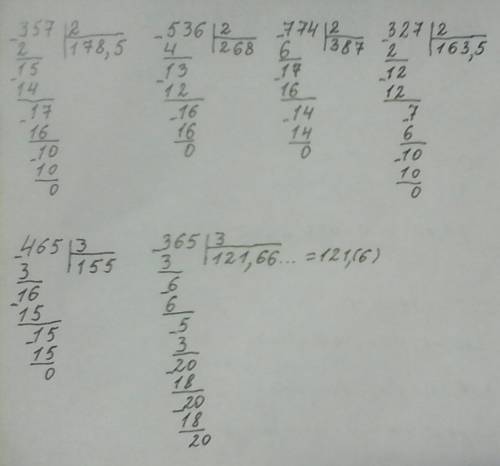 -357 |2
2 |178,5
-15
14
-17
16
-10
10
0
-536 |2
4 |268
-13
12
-16
16
0
-774 |2
6 |387
-17
16
-14
14
0
-327 |2
2 |163,5
-12
12
-7
6
-10
10
0
-465 |3
3 |155
-16
15
-15
15
0
-365 |3
3 |121,66... =121,(6)
-6
6
-5
3
-20
18
-20
18
20